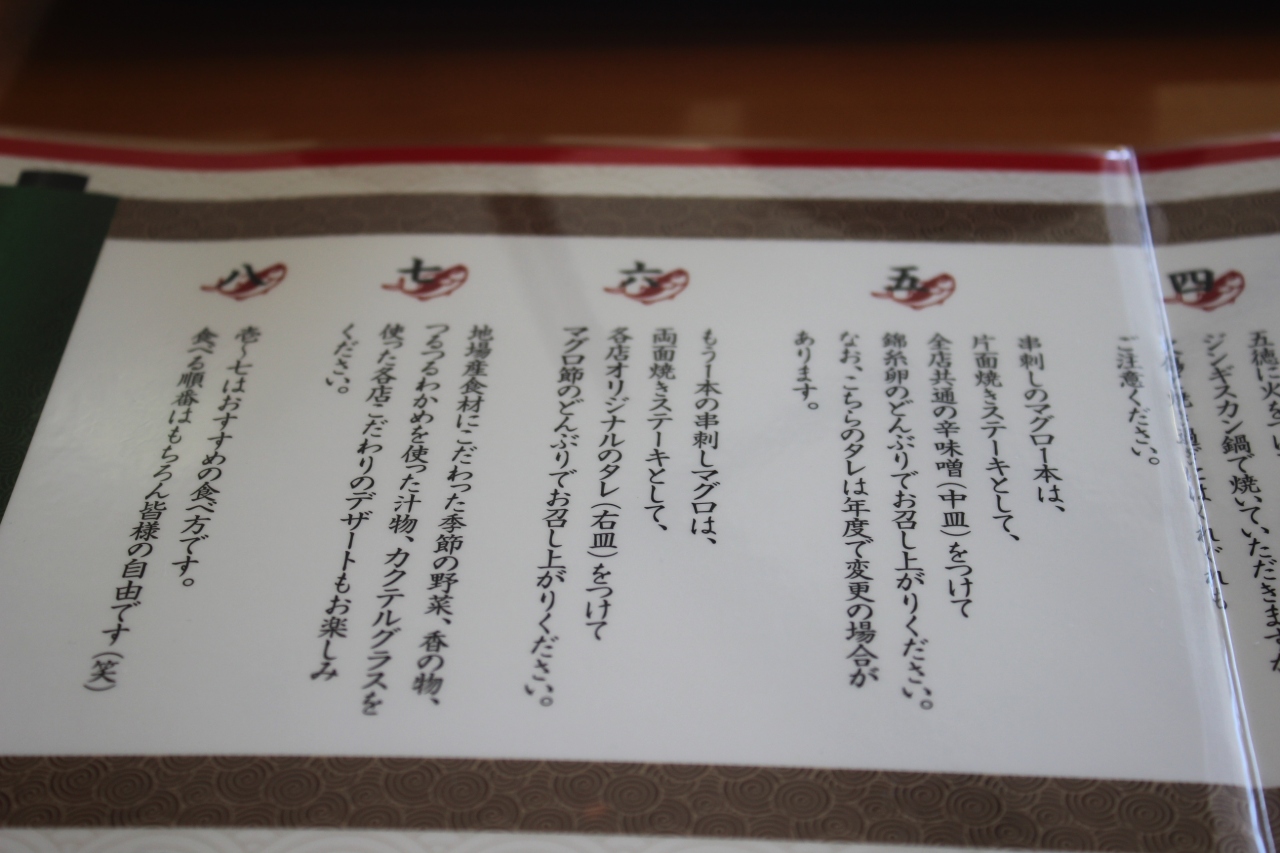 四
五徳に火を
ジンギスカン鍋で焼いていただきますが
ご注意ください。
五
串刺しのマグロ一本は、
片面焼きステーキとして、
全店共通の辛味噌(中皿)をつけて
錦糸卵のどんぶりでお召し上がりください。
なお、こちらのタレは年度で変更の場合が
あります。
六
もう一本の串刺しマグロは、
両面焼きステーキとして、
各店オリジナルのタレ(右皿)をつけて
マグロ節のどんぶりでお召し上がりください。
七
地場産食材にこだわった季節の野菜、香の物、
つるつるわかめを使った汁物、カクテルグラスを
使った各店こだわりのデザートもお楽しみ
ください。
八
壱〜七はおすすめの食べ方です。
食べる順番はもちろん皆様の自由です(笑)